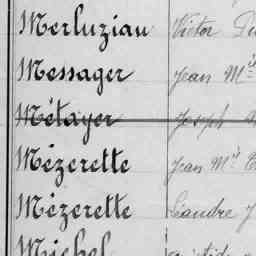 Merluziau Victor
Messager Jean M
Métayer Joseph
Mézerette Jean M
Mézerette Léandre
Michel